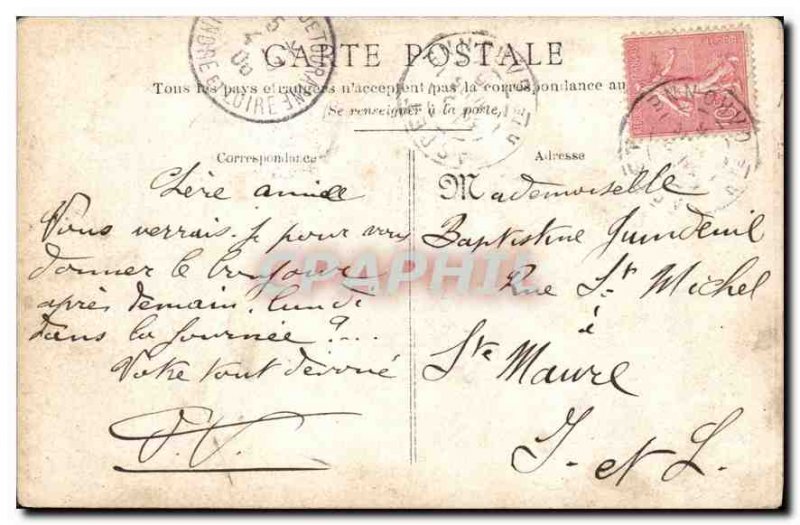 CARTE POSTALE
Tous les pays étrangers n'acceptent pas la correspondance au
(Se renseigner à la poste)
Correspondance
Chère amie
Vous verrais-je pour vous
donner le bonjour
après demain, lundi
dans la journée ?...
Votre tout dévoué
Adresse
Mademoiselle
Baptistine
Rue St Michel
à
Ste Maure
I. et L.
DE TOURAINE
ET LOIRE
CPAPHIL